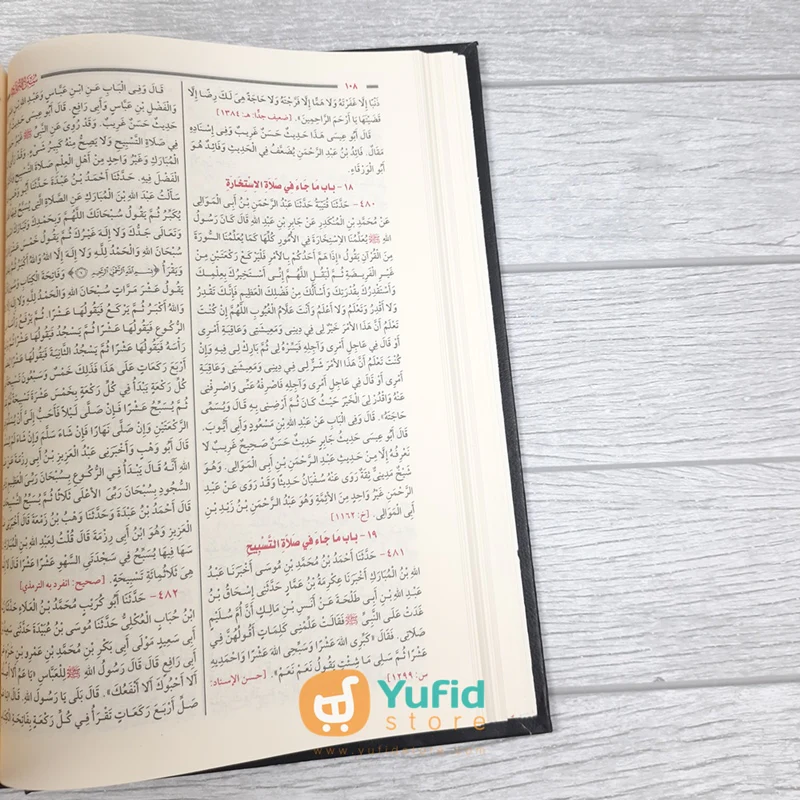 ١٠٨
ذَنْبًا إِلَّا غَفَرْتَهُ وَلَا هَمًّا إِلَّا فَرَّجْتَهُ وَلَا حَاجَةً هِيَ لَكَ رِضًا إِلَّا
قَضَيْتَهَا يَا أَرْحَمَ الرَّاحِمِينَ». [ضعيف جدًّا: هـ: ١٣٨٤]
قَالَ أَبُو عِيسَى هَذَا حَدِيثٌ حَسَنٌ غَرِيبٌ وَفِي إِسْنَادِهِ
مَقَالٌ. فَائِدُ بْنُ عَبْدِ الرَّحْمَنِ يُضَعَّفُ فِي الْحَدِيثِ وَفَائِدٌ هُوَ
أَبُو الْوَرْقَاءِ.
١٨- باب مَا جَاءَ فِي صَلَاةِ الِاسْتِخَارَةِ
٤٨٠- حَدَّثَنَا قُتَيْبَةُ حَدَّثَنَا عَبْدُ الرَّحْمَنِ بْنُ أَبِي الْمَوَالِي
عَنْ مُحَمَّدِ بْنِ الْمُنْكَدِرِ عَنْ جَابِرِ بْنِ عَبْدِ اللهِ قَالَ كَانَ رَسُولُ
اللهِ ﷺ يُعَلِّمُنَا الِاسْتِخَارَةَ فِي الْأُمُورِ كُلِّهَا كَمَا يُعَلِّمُنَا السُّورَةَ
مِنَ الْقُرْآنِ يَقُولُ «إِذَا هَمَّ أَحَدُكُمْ بِالْأَمْرِ فَلْيَرْكَعْ رَكْعَتَيْنِ مِنْ
غَيْرِ الْفَرِيضَةِ ثُمَّ لْيَقُلِ اللَّهُمَّ إِنِّي أَسْتَخِيرُكَ بِعِلْمِكَ
وَأَسْتَقْدِرُكَ بِقُدْرَتِكَ وَأَسْأَلُكَ مِنْ فَضْلِكَ الْعَظِيمِ فَإِنَّكَ تَقْدِرُ
وَلَا أَقْدِرُ وَتَعْلَمُ وَلَا أَعْلَمُ وَأَنْتَ عَلَّامُ الْغُيُوبِ اللَّهُمَّ إِنْ كُنْتَ
تَعْلَمُ أَنَّ هَذَا الْأَمْرَ خَيْرٌ لِي فِي دِينِي وَمَعِيشَتِي وَعَاقِبَةِ أَمْرِي
أَوْ قَالَ فِي عَاجِلِ أَمْرِي وَآجِلِهِ فَيَسِّرْهُ لِي ثُمَّ بَارِكْ لِي فِيهِ وَإِنْ
كُنْتَ تَعْلَمُ أَنَّ هَذَا الْأَمْرَ شَرٌّ لِي فِي دِينِي وَمَعِيشَتِي وَعَاقِبَةِ
أَمْرِي أَوْ قَالَ فِي عَاجِلِ أَمْرِي وَآجِلِهِ فَاصْرِفْهُ عَنِّي وَاصْرِفْنِي
عَنْهُ وَاقْدُرْ لِيَ الْخَيْرَ حَيْثُ كَانَ ثُمَّ أَرْضِنِي بِهِ قَالَ وَيُسَمِّي
حَاجَتَهُ». قَالَ وَفِي الْبَابِ عَنْ عَبْدِ اللهِ بْنِ مَسْعُودٍ وَأَبِي أَيُّوبَ.
قَالَ أَبُو عِيسَى حَدِيثُ جَابِرٍ حَدِيثٌ حَسَنٌ صَحِيحٌ غَرِيبٌ لَا
نَعْرِفُهُ إِلَّا مِنْ حَدِيثِ عَبْدِ الرَّحْمَنِ بْنِ أَبِي الْمَوَالِي. وَهُوَ
شَيْخٌ مَدِينِيٌّ ثِقَةٌ رَوَى عَنْهُ سُفْيَانُ حَدِيثًا وَقَدْ رَوَى عَنْ عَبْدِ
الرَّحْمَنِ غَيْرُ وَاحِدٍ مِنَ الْأَئِمَّةِ وَهُوَ عَبْدُ الرَّحْمَنِ بْنُ زَيْدِ بْنِ
أَبِي الْمَوَالِي. [خ: ١١٦٢]
١٩- باب مَا جَاءَ فِي صَلَاةِ التَّسْبِيحِ
٤٨١- حَدَّثَنَا أَحْمَدُ بْنُ مُحَمَّدِ بْنِ مُوسَى أَخْبَرَنَا عَبْدُ
اللهِ بْنُ الْمُبَارَكِ أَخْبَرَنَا عِكْرِمَةُ بْنُ عَمَّارٍ حَدَّثَنِي إِسْحَاقُ بْنُ
عَبْدِ اللهِ بْنِ أَبِي طَلْحَةَ عَنْ أَنَسِ بْنِ مَالِكٍ أَنَّ أُمَّ سُلَيْمٍ
غَدَتْ عَلَى النَّبِيِّ ﷺ فَقَالَتْ عَلِّمْنِي كَلِمَاتٍ أَقُولُهُنَّ فِي
صَلَاتِي. فَقَالَ «كَبِّرِي اللهَ عَشْرًا وَسَبِّحِي اللهَ عَشْرًا وَاحْمَدِيهِ
عَشْرًا ثُمَّ سَلِي مَا شِئْتِ يَقُولُ نَعَمْ نَعَمْ». [حسن الإسناد:
س: ١٢٩٩]
قَالَ وَفِي الْبَابِ عَنِ ابْنِ عَبَّاسٍ وَعَبْدِ اللهِ بْنِ
وَالْفَضْلِ بْنِ عَبَّاسٍ وَأَبِي رَافِعٍ. قَالَ أَبُو عِيسَى
حَدِيثٌ حَسَنٌ غَرِيبٌ. وَقَدْ رُوِيَ عَنِ النَّبِيِّ ﷺ
فِي صَلَاةِ التَّسْبِيحِ وَلَا يَصِحُّ مِنْهُ كَبِيرُ شَيْءٍ.
الْمُبَارَكِ وَغَيْرُ وَاحِدٍ مِنْ أَهْلِ الْعِلْمِ صَلَاةَ التَّسْبِيحِ
الْفَضْلَ فِيهِ. حَدَّثَنَا أَحْمَدُ بْنُ عَبْدَةَ حَدَّثَنَا
سَأَلْتُ عَبْدَ اللهِ بْنَ الْمُبَارَكِ عَنِ الصَّلَاةِ الَّتِي يُسَبَّحُ
يُكَبِّرُ ثُمَّ يَقُولُ سُبْحَانَكَ اللَّهُمَّ وَبِحَمْدِكَ وَتَبَارَكَ
وَتَعَالَى جَدُّكَ وَلَا إِلَهَ غَيْرُكَ ثُمَّ يَقُولُ خَمْسَ
سُبْحَانَ اللهِ وَالْحَمْدُ لِلَّهِ وَلَا إِلَهَ إِلَّا اللهُ وَاللهُ
وَيَقْرَأُ ﴿بِسْمِ اللَّهِ الرَّحْمَنِ الرَّحِيمِ﴾ وَفَاتِحَةَ الْكِتَابِ
يَقُولُ عَشْرَ مَرَّاتٍ سُبْحَانَ اللهِ وَالْحَمْدُ لِلَّهِ وَلَا
وَاللهُ أَكْبَرُ ثُمَّ يَرْكَعُ فَيَقُولُهَا عَشْرًا ثُمَّ يَرْفَعُ
الرُّكُوعِ فَيَقُولُهَا عَشْرًا ثُمَّ يَسْجُدُ فَيَقُولُهَا عَشْرًا
رَأْسَهُ فَيَقُولُهَا عَشْرًا ثُمَّ يَسْجُدُ الثَّانِيَةَ فَيَقُولُهَا
أَرْبَعَ رَكَعَاتٍ عَلَى هَذَا فَذَلِكَ خَمْسٌ وَسَبْعُونَ
كُلِّ رَكْعَةٍ يَبْدَأُ فِي كُلِّ رَكْعَةٍ بِخَمْسَ عَشْرَةَ
ثُمَّ يُسَبِّحُ عَشْرًا فَإِنْ صَلَّى لَيْلًا فَأَحَبُّ إِلَيَّ أَنْ
الرَّكْعَتَيْنِ وَإِنْ صَلَّى نَهَارًا فَإِنْ شَاءَ سَلَّمَ وَإِنْ شَاءَ
قَالَ أَبُو وَهْبٍ وَأَخْبَرَنِي عَبْدُ الْعَزِيزِ بْنُ أَبِي رِزْمَةَ
اللهِ أَنَّهُ قَالَ يَبْدَأُ فِي الرُّكُوعِ بِسُبْحَانَ رَبِّيَ الْعَظِيمِ
السُّجُودِ بِسُبْحَانَ رَبِّيَ الْأَعْلَى ثَلَاثًا ثُمَّ يُسَبِّحُ
قَالَ أَحْمَدُ بْنُ عَبْدَةَ وَحَدَّثَنَا وَهْبُ بْنُ زَمْعَةَ قَالَ أَخْبَرَنِي
الْعَزِيزِ وَهُوَ ابْنُ أَبِي رِزْمَةَ قَالَ قُلْتُ لِعَبْدِ اللهِ بْنِ الْمُبَارَكِ
سَهَا فِيهَا يُسَبِّحُ فِي سَجْدَتَيِ السَّهْوِ عَشْرًا عَشْرًا قَالَ
هِيَ ثَلَاثُمِائَةِ تَسْبِيحَةٍ. [صحيح: انفرد به الترمذي]
٤٨٢- حَدَّثَنَا أَبُو كُرَيْبٍ مُحَمَّدُ بْنُ الْعَلَاءِ حَدَّثَنَا
ابْنُ حُبَابٍ الْعُكْلِيُّ حَدَّثَنَا مُوسَى بْنُ عُبَيْدَةَ حَدَّثَنِي
أَبِي سَعِيدٍ مَوْلَى أَبِي بَكْرِ بْنِ مُحَمَّدِ بْنِ عَمْرِو بْنِ
أَبِي رَافِعٍ قَالَ قَالَ رَسُولُ اللهِ ﷺ لِلْعَبَّاسِ «يَا عَمِّ
أَلَا أَحْبُوكَ أَلَا أَنْفَعُكَ». قَالَ بَلَى يَا رَسُولَ اللهِ.
صَلِّ أَرْبَعَ رَكَعَاتٍ تَقْرَأُ فِي كُلِّ رَكْعَةٍ بِفَاتِحَةِ
Yufid
store
www.yufidstore.com